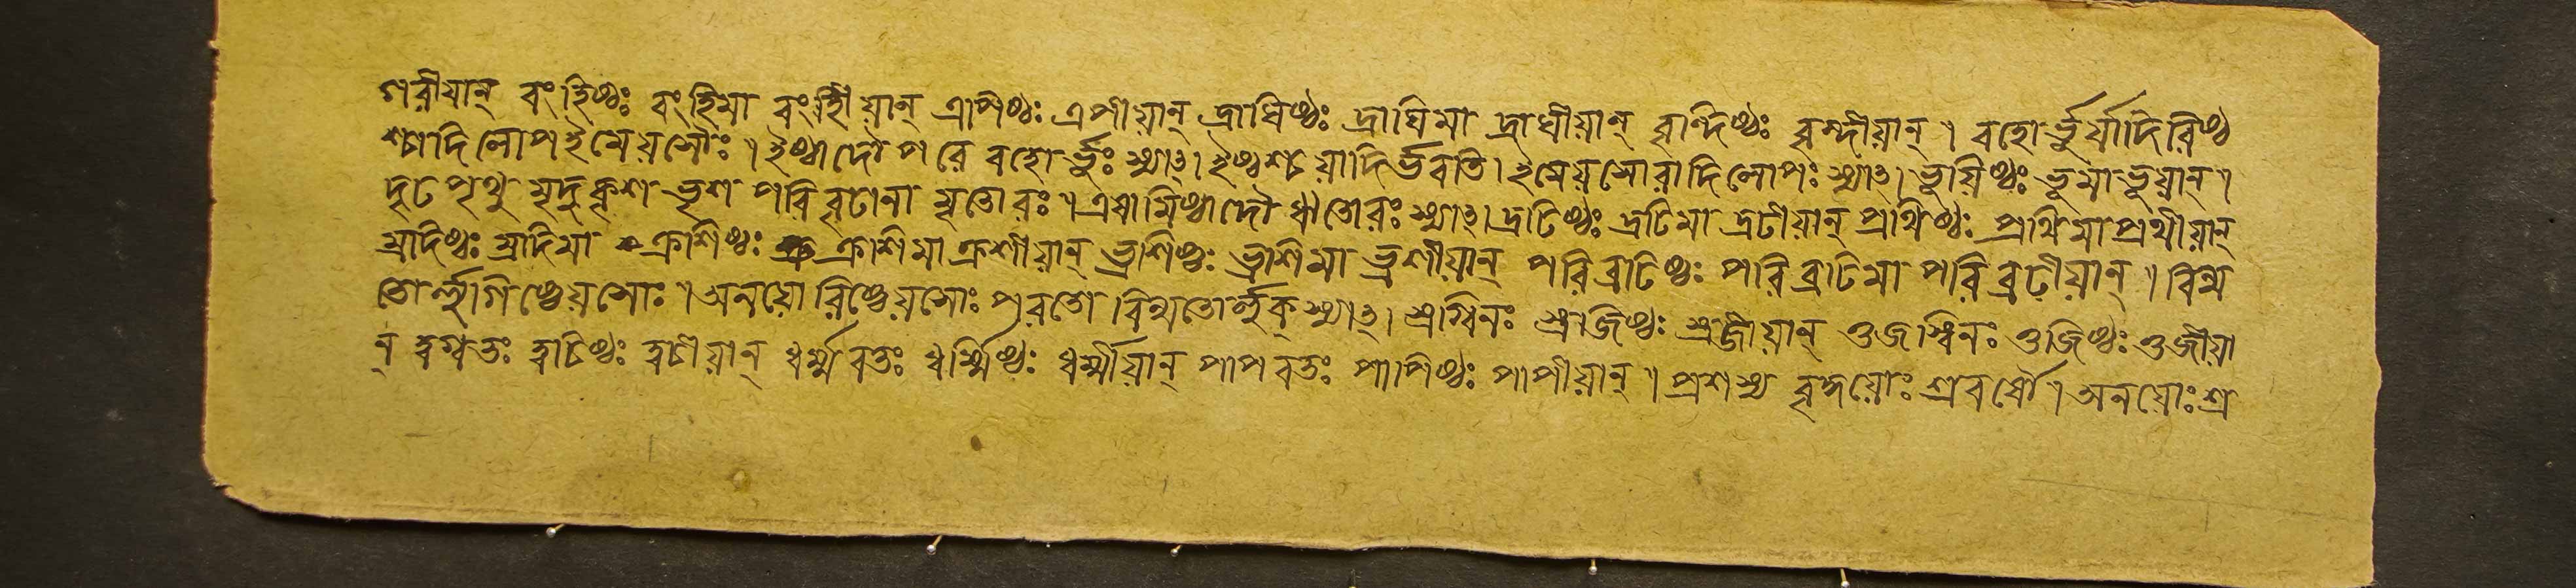 গরীয়ান্ বংহিষ্ঠঃ বংহিমা বংহীয়ান্ ত্রপিষ্ঠঃ ত্রপীয়ান্ দ্রাঘিষ্ঠঃ দ্রাঘিমা দ্রাঘীয়ান্ বৃন্দিষ্ঠঃ বৃন্দীয়ান্। বহোর্ভূর্যাদিরিষ্ঠ
শ্চাদিলোপ ইমেয়সোঃ। ইষ্ঠাদৌ পরে বহোর্ভূঃ স্যাৎ। ইষ্ঠশ্চ য়াদির্ভবতি। ইমেয়সোরাদিলোপঃ স্যাৎ। ভূয়িষ্ঠঃ ভূমা ভূয়ান্।
দৃঢ পৃথু মৃদু কৃশ ভৃশ পরিবৃঢানা মৃতোরঃ। এষামিষ্ঠাদৌ ঋতোরঃ স্যাৎ। দ্রঢিষ্ঠঃ দ্রঢিমা দ্রঢীয়ান্ প্রথিষ্ঠঃ প্রথিমা প্রথীয়ান্
ম্রদিষ্ঠঃ ম্রদিমা ক্রশিষ্ঠঃ ক্রশিমা ক্রশীয়ান্ ভ্রশিষ্ঠঃ ভ্রশিমা ভ্রশীয়ান্ পরিব্রঢিষ্ঠঃ পরিব্রঢিমা পরিব্রঢীয়ান্। বিন্ম
তোর্লুগিষ্ঠেয়সোঃ। অনয়োরিষ্ঠেয়সোঃ পরতো বিন্মতোর্লুক্ স্যাৎ। স্রগ্বিনঃ স্রজিষ্ঠঃ স্রজীয়ান্ ওজস্বিনঃ ওজিষ্ঠঃ ওজীয়া
ন্ ত্বগ্বতঃ ত্বচিষ্ঠঃ ত্বচীয়ান্ ধর্ম্মবতঃ ধর্ম্মিষ্ঠঃ ধর্ম্মীয়ান্ পাপবতঃ পাপিষ্ঠঃ পাপীয়ান্। প্রশস্য বৃদ্ধয়োঃ শ্রবর্ষৌ। অনয়োঃ শ্র